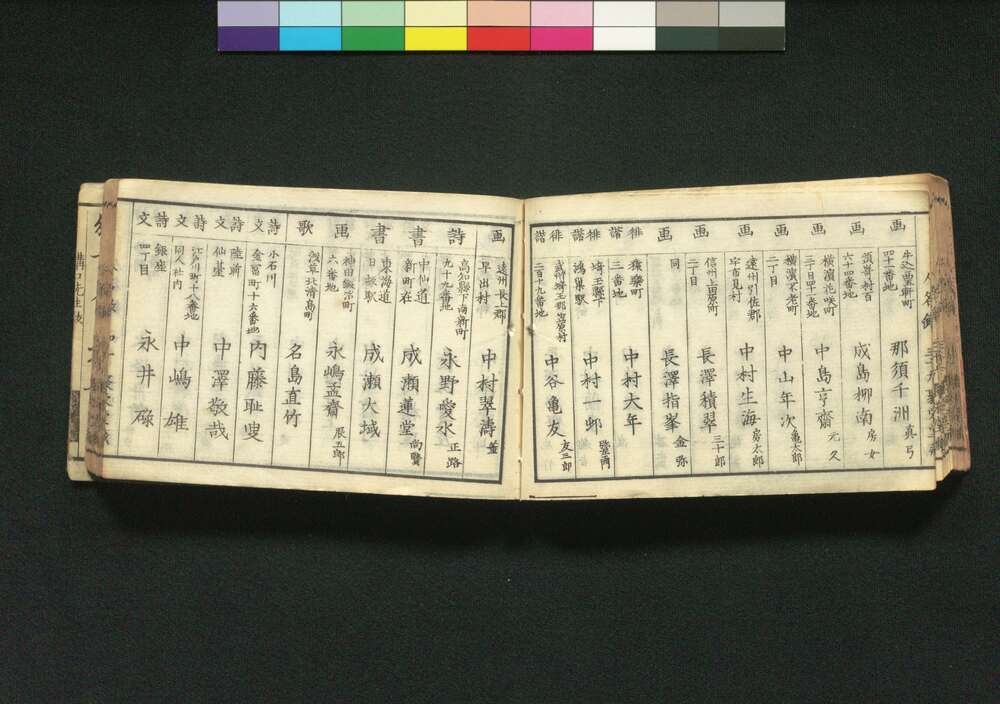 画
牛込
四十二番地
那須千洲
真弓
画
須崎村百
六十四番地
成島柳南
房女
画
横濱花咲町
三丁目四十一番地
中島亨齋
元久
画
横濱不老町
二丁目
中山年次
亀太郎
画
遠州引佐郡
宇布見村
中村生海
房太郎
画
信州上田原町
二丁目
長澤積翠
三十郎
画
同
長澤指峯
金弥
俳諧
猿樂町
三番地
中村大年
俳諧
埼玉縣下
鴻巣駅
中村一邨
俳諧
武州埼玉郡
二百十九番地
中谷亀友
友三郎
画
遠州長上郡
早出村
中村翠濤
詩
高知縣下南新町
九十九番地
永野愛氷
正路
書
中仙道
新町在
成瀬蓮堂
尚賢
書
東海道
日坂駅
成瀬大域
画
神田鍛冶町
六番地
永嶋孟齋
辰五郎
歌
浅草北清島町
名島直竹
詩文
小石川
金冨町十六番地
内藤耻叟
詩文
陸前
仙臺
中澤敬哉
詩文
江戸川町十八番地
同人社内
中嶋雄
詩文
銀座
四丁目
永井碌